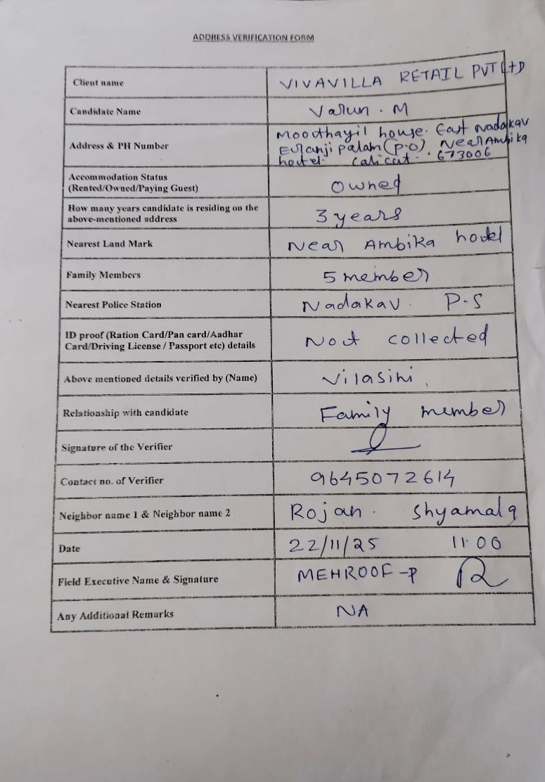 ADDRESS VERIFICATION FORM
Client name VIVAVILLA RETAIL PVT LTD
Candidate Name Varun . M
Address & PH Number Moothayil house. East Nadakav
Euranji palam (P.O) Near Ambika
hotel. calicut . 673006
Accommodation Status
(Rented/Owned/Paying Guest) owned
How many years candidate is residing on the
above-mentioned address 3 years
Nearest Land Mark Near Ambika hotel
Family Members 5 member
Nearest Police Station Nadakav. P.S
ID proof (Ration Card/Pan card/Aadhar
Card/Driving License / Passport etc) details Not collected
Above mentioned details verified by (Name) Vilasini.
Relationship with candidate Family member
Signature of the Verifier
Contact no. of Verifier 9645072614
Neighbor name 1 & Neighbor name 2 Rojan . Shyamala
Date 22/11/25 11.00
Field Executive Name & Signature MEHROOF-P
Any Additional Remarks NA